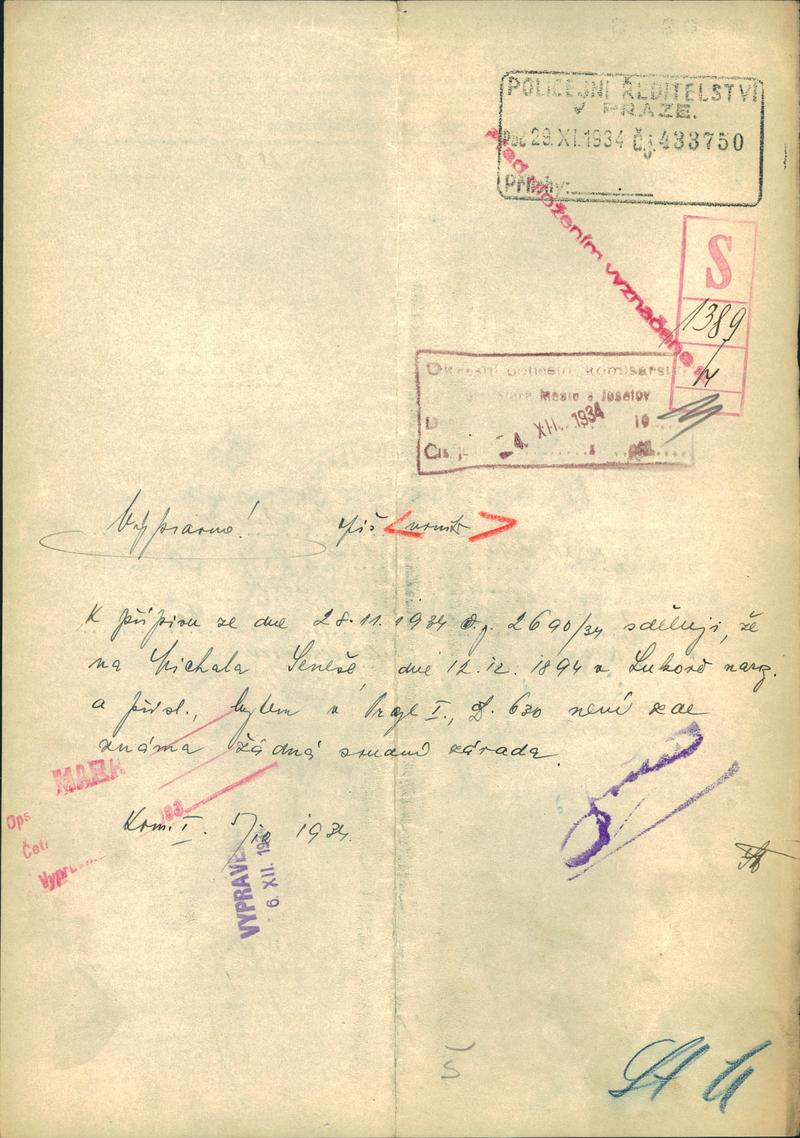 POLICEJNÍ ŘEDITELSTVÍ
V PRAZE.
29.XI.1934 Čj.433750
Přílohy:
před vložením vyznačena
S
1389
14
Okresní policejní komisařství
Staré Město a Josefov
4. XII. 1934 19
Čís.
Vypraveno!
K přípisu ze dne 28.11.1934 č.j. 2690/34 sděluji, že
na Michala Seneše, dne 12.12.1894 v Lukově narz.
a přísl., bytem v Praze I., č. 630 není zde
známa žádná soudní závada.
Kom. I. 1934.
193
Ops
VYPRAVE
6. XII. 193
Š